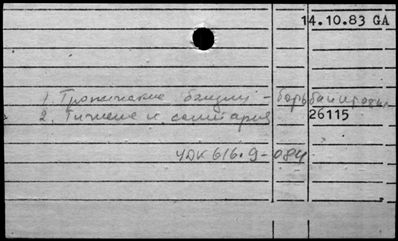 14.10.83 GA
1. Тропические
2. Гигиена и санитария 26115
УДК 616.9-084